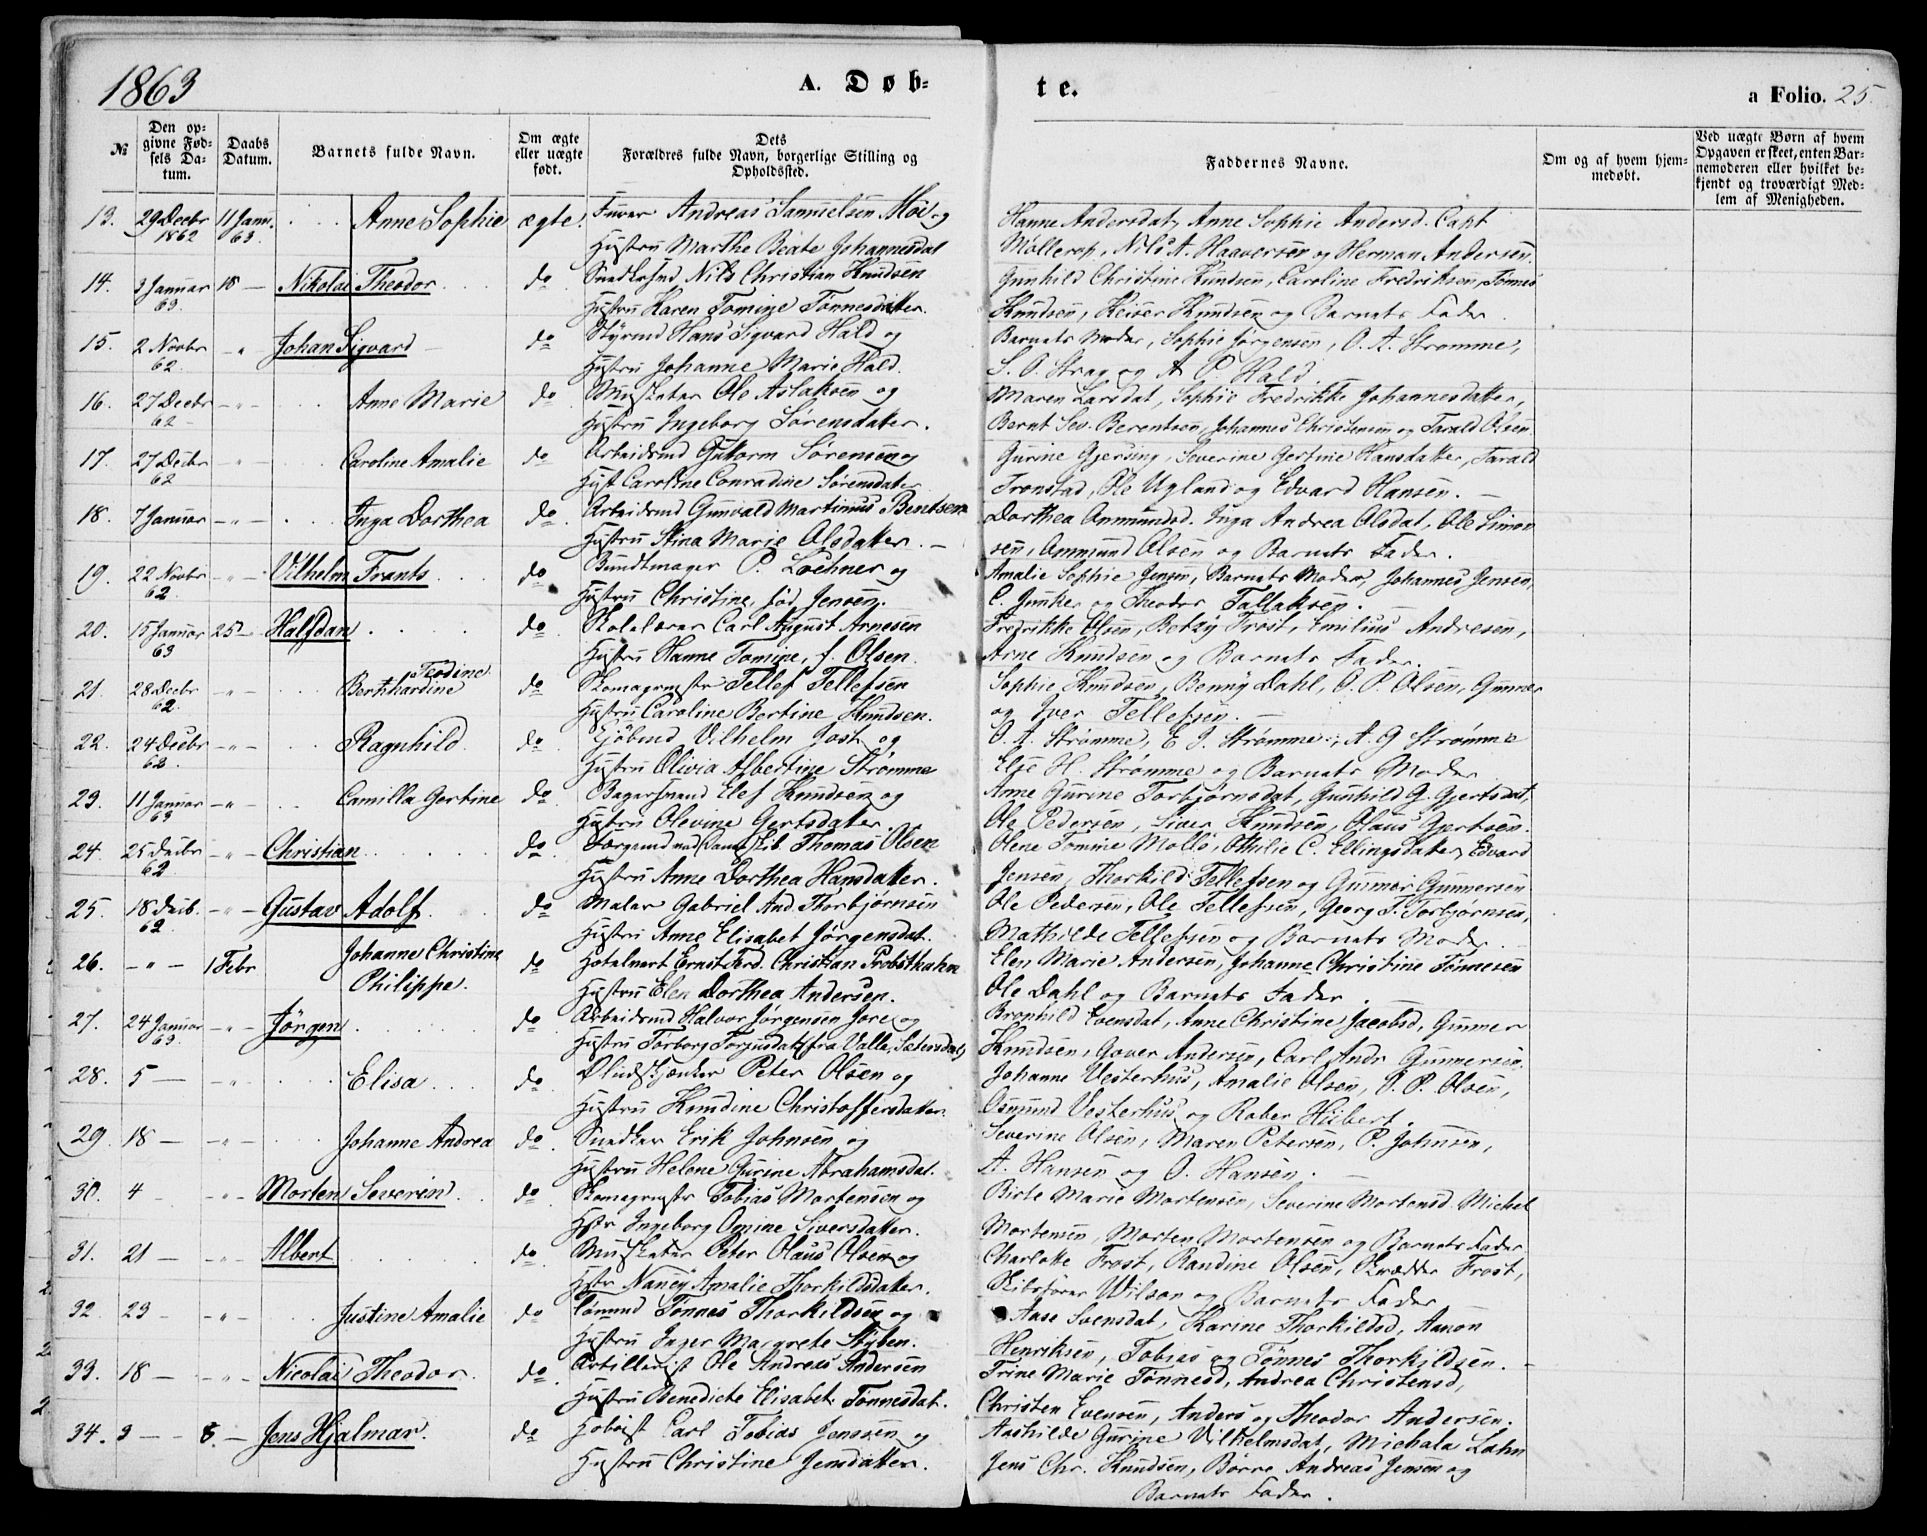 1863
A. Døb-
te.
a Folio. 25.
№
Den opgivne Fødsels Datum.
Daabs Datum.
Barnets fulde Navn.
Om ægte eller uægte født.
Dets Forældres fulde Navn, borgerlige Stilling og Opholdssted.
Faddernes Navne.
Om og af hvem hjemmedøbt.
Ved uægte Børn af hvem Opgaven er skeet, enten Barnemoderen eller hvilket bekjendt og troværdigt Medlem af Menigheden.
13. 29 Decbr 1862 11 Janu. 63. Anne Sophie ægte. Andreas Samuelsen Moi og
Hustru Marthe Beate Johannesdat
Hanne Andersdat, Anne Sophie Andersd. Capt
Møllerop, Nils A. Haaversen og Herman Andersen.
14. 3 Januar 63. 18 — Nikolai Theodor do Nils Christian Knudsen
Hustru Karen Tomine Tønnesdatter.
Gunhild Christine Knudsen, Caroline Fredriksen, Tønnes
Knudsen, Keiser Knudsen og Barnets Fader.
15. 2 Novbr 62. -"- Johan Sigvard do Styrmd Hans Sigvard Hald og
Hustru Johanne Marie Hald.
Barnets Moder, Sophie Jørgensen, O. A. Strømme,
S. O. Strag og A. P. Hald.
16. 27 Decbr 62 -"- Anne Marie do Musketer Ole Aslaksen og
Hustru Ingeborg Sørensdatter.
Maren Larsdat, Sophie Fredrikke Johannesdatter,
Bernt Sev. Berentsen, Johannes Christensen og Tarald Olsen
17. 27 Decbr 62 -"- Caroline Amalie do Arbeidsmd Gutorm Sørensen og
Hust Caroline Conradine Sørensdatter
Gurine Gjersing, Severine Gertine Hansdatter, Tarald
Tronstad, Ole Ugland og Edvard Hansen. —
18. 7 Januar -"- Inga Dorthea do. Arbeidsmd Gunvald Martinius Bentsen
Hustru Stina Marie Olsdatter. —
Dorthea Ommundsd. Inga Andrea Olsdat, Ole Simon
sen, Ommund Olsen og Barnets Fader.
19. 22 Novbr 62 -"- Vilhelm Frants do Bundtmager P. Lochner og
Hustru Christine, fød Jensen.
Amalie Sophie Jensen, Barnets Moder, Johannes Jensen,
C. Junker og Theodor Tallaksen.
20. 15 Januar 63 25 — Halfdan do Skolelærer Carl August Arnesen
Hustru Hanne Tomine, f. Olsen.
Fredrikke Olsen, Betzy Frost, Emilius Andresen,
Arne Knudsen og Barnets Fader.
21. 28 Decbr 62. -"- Bernthardine Teodine do Skomagermstr Tellef Tellefsen
Hustru Caroline Bertine Knudsen.
Sophie Knudsen, Benny Dahl, O. P. Olsen, Gunner
og Iver Tellefsen. —
22. 24 Decbr 62. -"- Ragnhild. do Kjøbmd Vilhelm Jost og
Hustru Olivia Albertine Strømme
O. A. Strømme, E. J. Strømme, A. G Strømme
Else H. Strømme og Barnets Moder
23. 11 Januar 63 -"- Camilla Gertine do Bagersvend Elef Knudsen og
Hustru Olevine Gertsdatter.
Anne Gurine Torbjørnsdat, Gunhild G. Gjertsdat,
Ole Pedersen, Siver Knudsen, Olaus Gjertsen.
24. 25 Decbr 62 -"- Christian do. Thomas Olsen
Hustru Anne Dorthea Hansdatter.
Olene Tomine Mollø, Othilie C. Ellingsdatter, Edvard
Jensen, Thorkild Tellefsen og Gunner Gunnersen
25. 18 Decb. 62. -"- Gustav Adolf. do. Maler Gabriel And. Thorbjørnsen
Hustru Anne Elisabet Jørgensdat.
Ole Pedersen, Ole Tellefsen, Georg T. Torbjørnsen,
Mathilde Tellefsen og Barnets Moder.
26. -"- 1 Febr Johanne Christine Philippe. do Hotelvert Ernst Ferd. Christian Probsthahn
Hustru Elen Dorthea Andersen.
Elen Marie Andersen, Johanne Christine Tønnesen
Ole Dahl og Barnets Fader.
27. 24 Januar 63. -"- Jørgen do Arbeidsmd Halvor Jørgensen Jore og
Hustru Torborg Torjusdat (fra Valle, Sætersdal)
Brønhild Evensdat, Anne Christine Jacobsd, Gunner
Knudsen, Gover Andersen, Carl Andr Gunnersen
28. 5 — -"- Elisa do Peter Olsen og
Hustru Knudine Christoffersdatter.
Johanne Vesterhus, Amalie Olsen, O. P. Olsen,
Osmund Vesterhus og Rober Hubert.
29. 18 — -"- Johanne Andrea do. Snedker Erik Johnsen og
Hustru Helene Gurine Abrahamsdat.
Severine Olsen, Maren Petersen, P. Johnsen,
A. Hansen og O. Hansen. —
30. 4 -"- Morten Severin. do. Skomagermstr Tobias Mortensen og
Hstr Ingeborg Omine Siversdatter.
Birte Marie Mortensen, Severine Mortensd. Michel
Mortensen, Morten Mortensen og Barnets Fader
31. 21 — -"- Albert do. Musketer Peter Olaus Olsen og
Hstr Nancy Amalie Thorkildsdatter.
Charlotte Frost, Randine Olsen, Skrædder Frost,
Skibsfører Wilson og Barnets Fader
32. 23 -"- Justine Amalie do Tønnes Thorkildsen og
Hustru Inger Margrete Styben.
Aase Svensdat, Karine Thorkildsd, Aanon
Henriksen, Tobias og Tønnes Thorkildsen. —
33. 18 — -"- Nicolai Theodor. do. Artillerist Ole Andreas Andersen
Hustru Benedicte Elisabet Tønnesdat.
Trine Marie Tønnesd, Andrea Christensd,
Christen Evensen, Anders og Theodor Andersen.
34. 3 — 8. — Jens Hjalmar. do Hoboist Carl Tobias Jenssen og
Hustru Christine Jensdatter.
Aashilde Gurine Vilhelmsdat, Michala Lahn
Jens Chr. Knudsen, Børre Andreas Jensen og
Barnets Fader.